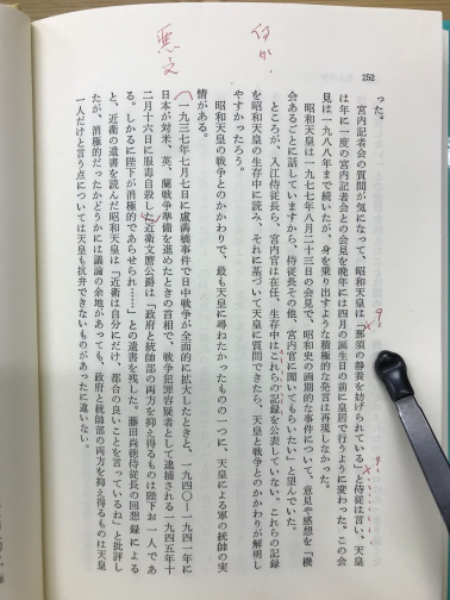 252
った。
宮内記者会の質問が気になって、昭和天皇は「那須の静養を妨げられている」と侍従は言い、天皇
は年に一度の宮内記者会との会見を晩年には四月の誕生日の前に皇居で行うように変わった。この会
見は一九八八年まで続いたが、身を乗り出すような積極的な発言は再現しなかった。
昭和天皇は一九七七年八月二十三日の会見で、昭和史の画期的な事件について、意見や感想を「機
会あるごとに話していますから、侍従長その他、宮内官に聞いてもらいたい」と望んでいた。
ところが、入江侍従長ら、宮内官は在任、生存中はこれらの記録を公表していない。これらの記録
を昭和天皇の生存中に読み、それに基づいて天皇に質問できたら、天皇と戦争とのかかわりが解明し
やすかったろう。
昭和天皇の戦争とのかかわりで、最も天皇に尋ねたかったものの一つに、天皇による軍の統帥の実
情がある。
一九三七年七月七日に盧溝橋事件で日中戦争が全面的に拡大したときと、一九四〇ー一九四一年に
日本が対米、英、蘭戦争準備を進めたときの首相で、戦争犯罪容疑者として逮捕される一九四五年十
二月十六日に服毒自殺した近衛文麿公爵は「政府と統帥部の両方を抑え得るものは陛下お一人であ
る。しかるに陛下が消極的であらせられ……」との遺書を残した。藤田尚徳侍従長の回想録による
と、近衛の遺書を読んだ昭和天皇は「近衛は自分にだけ、都合の良いことを言っているね」と批評し
たが、消極的だったかどうかには議論の余地があっても、政府と統帥部の両方を抑え得るものは天皇
一人だけと言う点については天皇も抗弁できないものがあったに違いない。
何か、
悪文